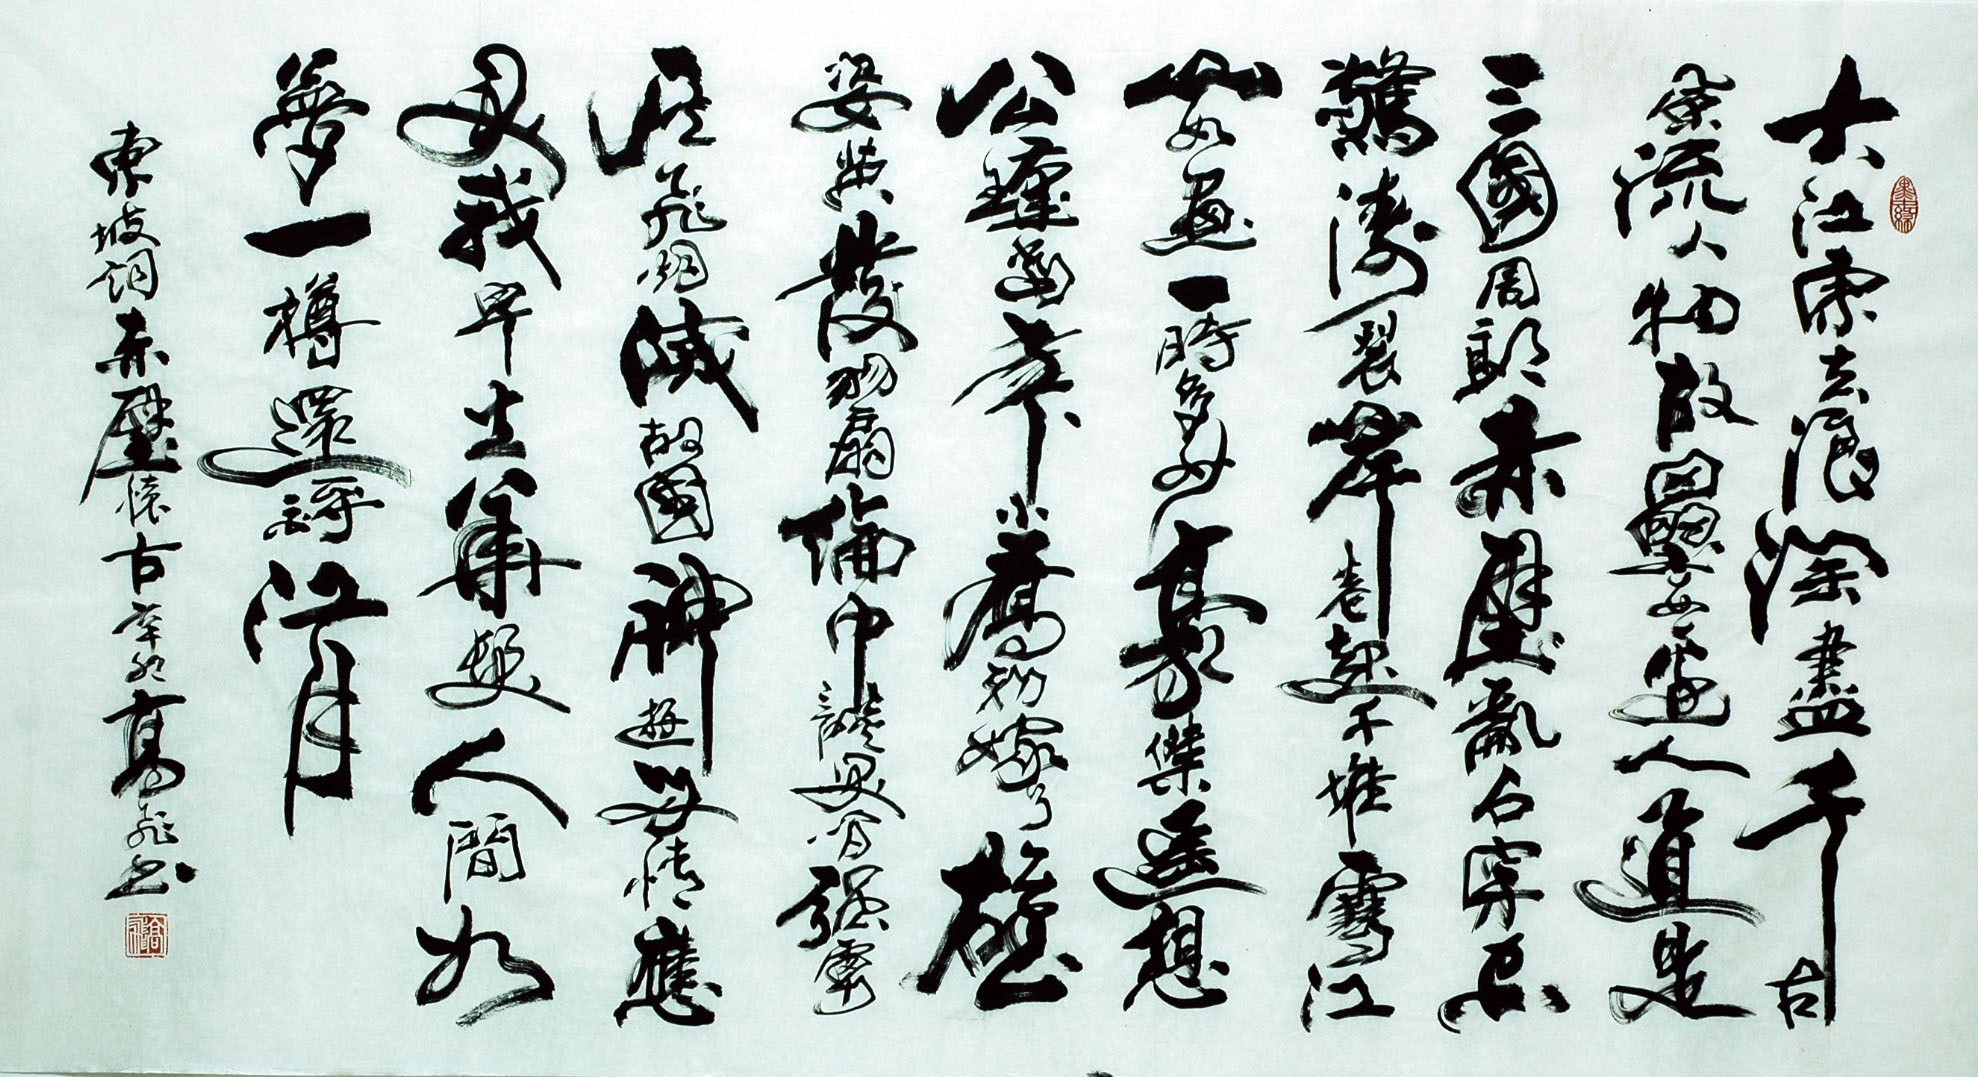 大江東去浪淘盡千古
風流人物故壘西邊人道是
三國周郎赤壁亂石穿空
驚濤裂岸卷起千堆雪江
山如畫一時多少豪傑遙想
公瑾當年小喬初嫁了雄
姿英發羽扇綸巾談笑間強虜
灰飛烟滅故國神遊多情應
笑我早生華髮人間如
夢一樽還酹江月
東坡詞赤壁懷古辛卯高飛書